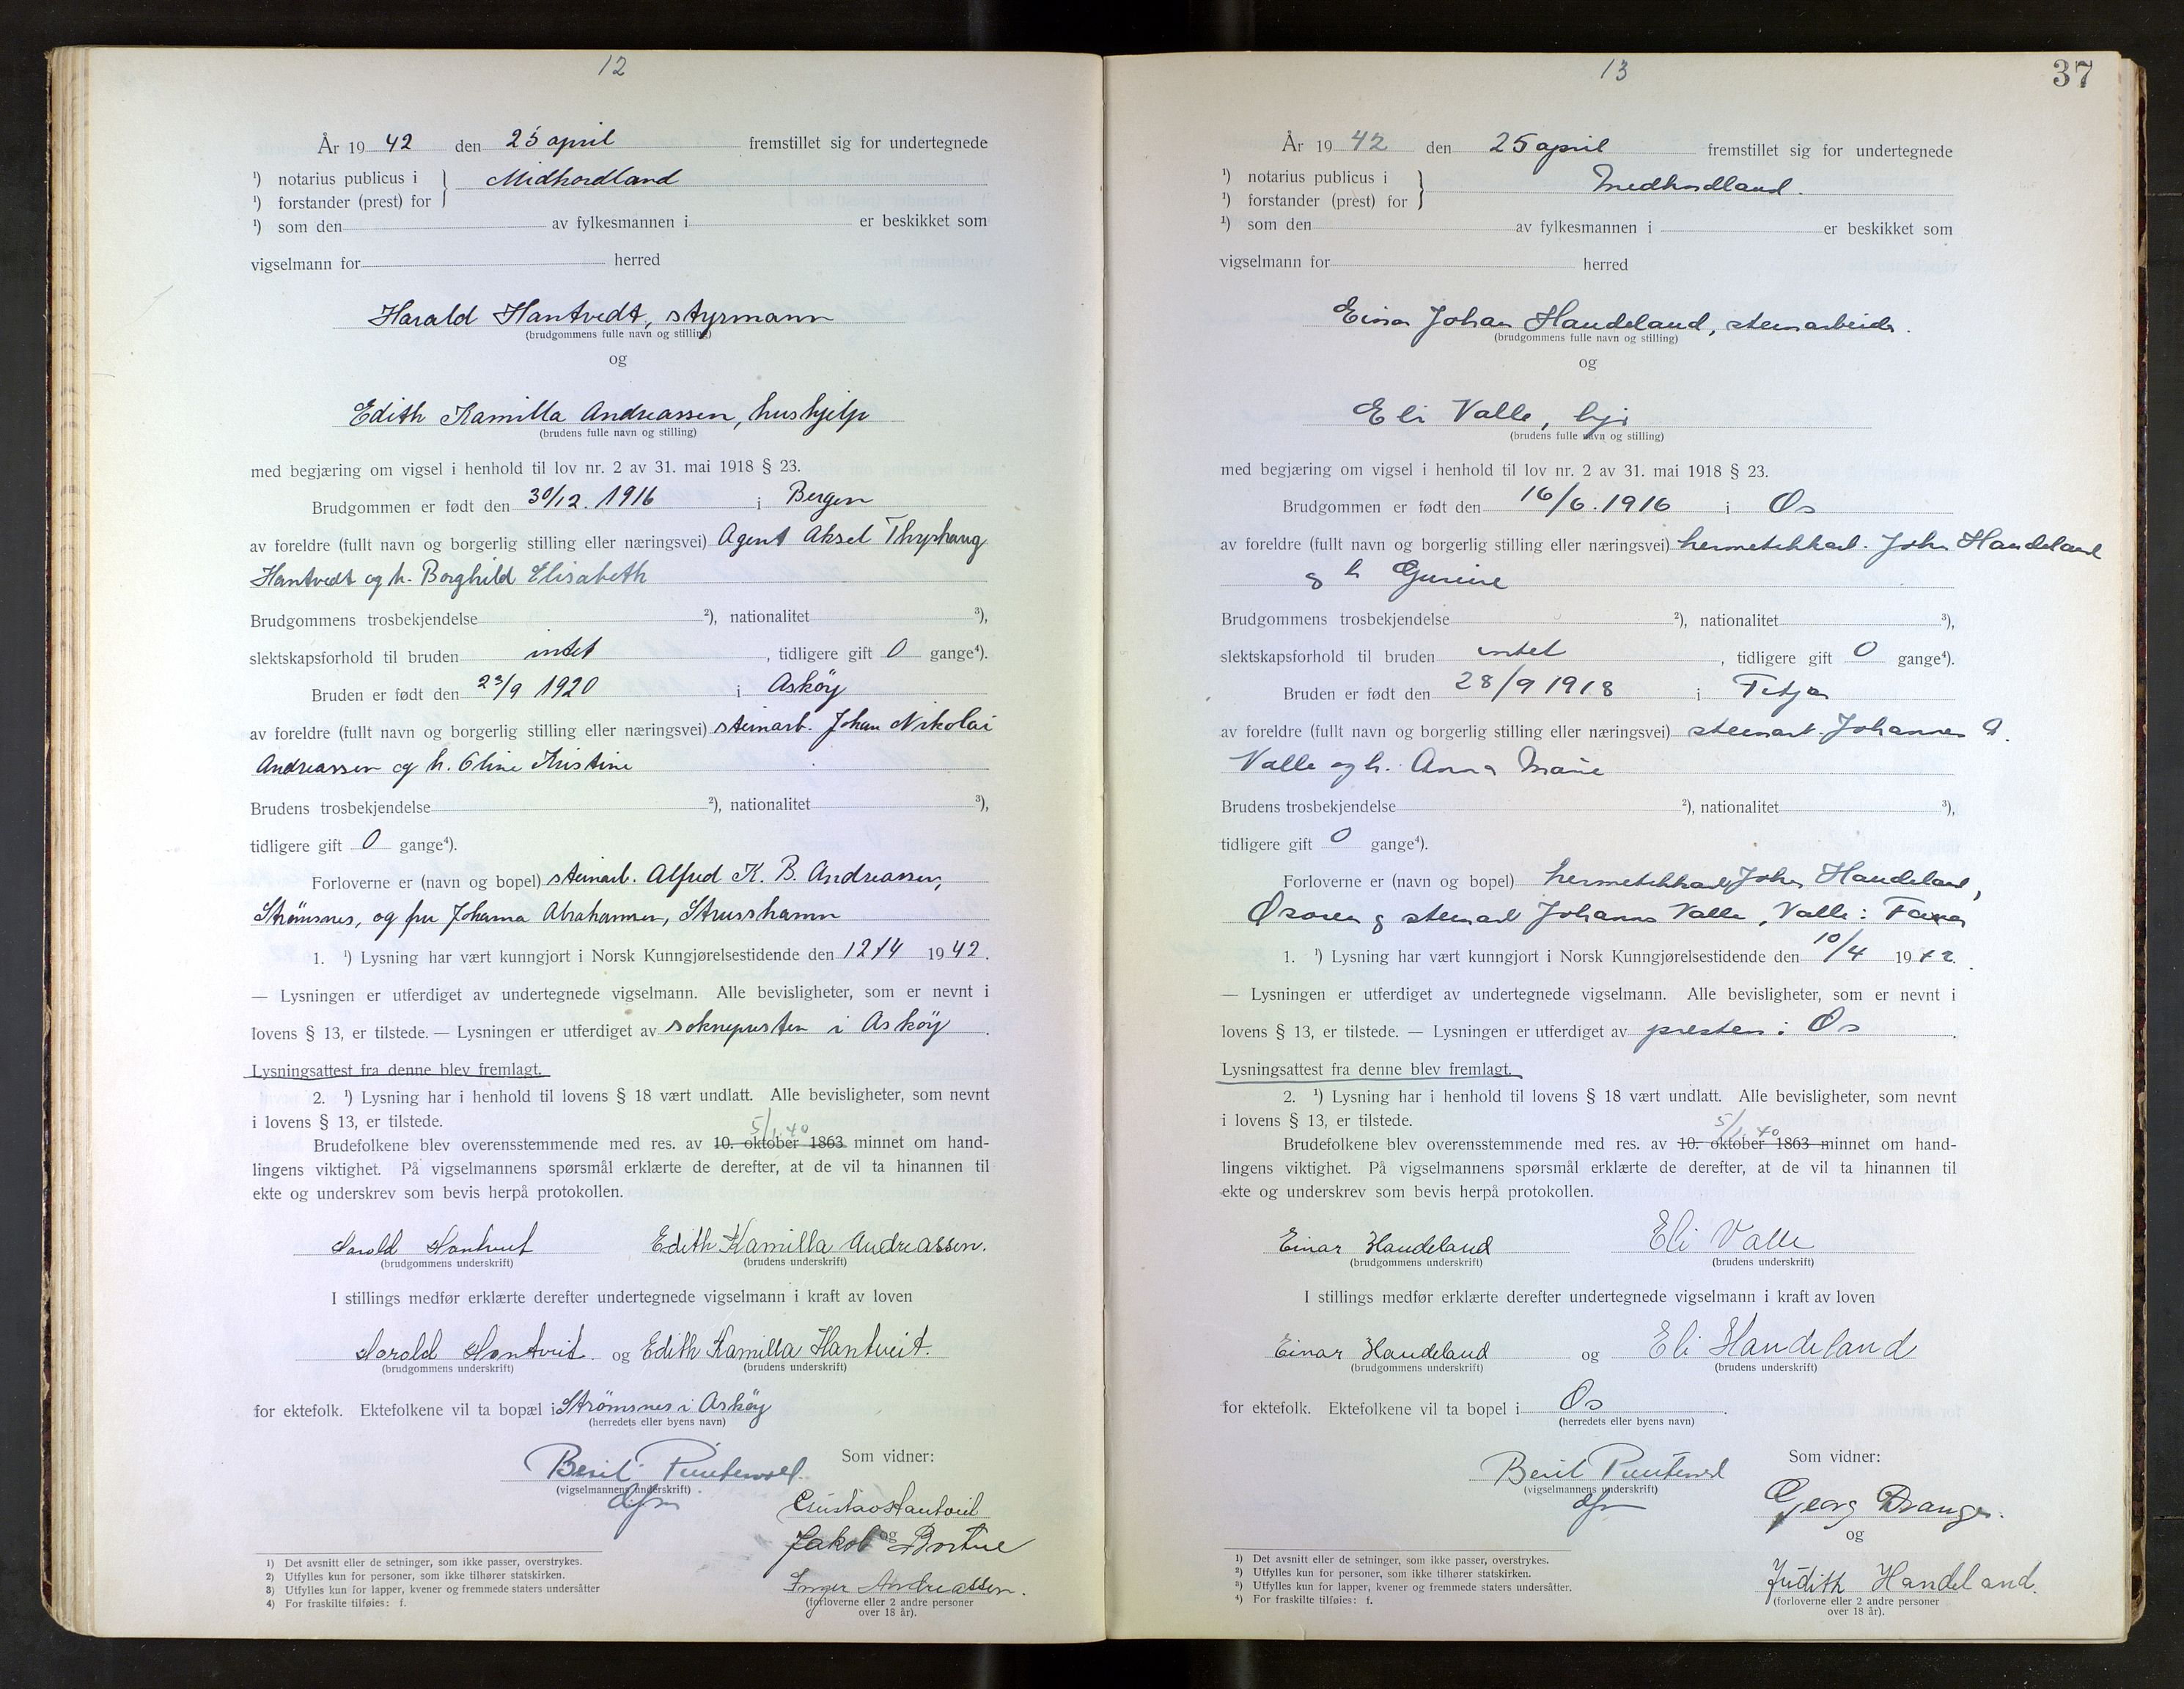 12
År 19 42 den 25 april fremstillet sig for undertegnede
¹) notarius publicus i } Midhordland
¹) forstander (prest) for
¹) som den av fylkesmannen i er beskikket som
vigselmann for herred
Harald Hantvedt, styrmann
(brudgommens fulle navn og stilling)
og
Edith Kamilla Andreassen, hushjelp
(brudens fulle navn og stilling)
med begjæring om vigsel i henhold til lov nr. 2 av 31. mai 1918 § 23.
Brudgommen er født den 30/12. 1916 i Bergen
av foreldre (fullt navn og borgerlig stilling eller næringsvei) Agent Aksel
Hantvedt og h. Borghild Elisabeth
Brudgommens trosbekjendelse ²), nationalitet ³),
slektskapsforhold til bruden intet , tidligere gift 0 gange⁴).
Bruden er født den 23/9 1920 i Asköy
av foreldre (fullt navn og borgerlig stilling eller næringsvei) steinarb. Johan Nikolai
Andreassen og h. Oline Kristine
Brudens trosbekjendelse ²), nationalitet ³),
tidligere gift 0 gange⁴).
Forloverne er (navn og bopel) steinarb. Alfred K. B. Andreassen,
Strömsnes, og fru Johanna Abrahamsen, Strusshamn
1. ¹) Lysning har vært kunngjort i Norsk Kunngjørelsestidende den 12/4 19 42.
— Lysningen er utferdiget av undertegnede vigselmann. Alle bevisligheter, som er nevnt i
lovens § 13, er tilstede. — Lysningen er utferdiget av soknepresten i Asköy .
Lysningsattest fra denne blev fremlagt.
2. ¹) Lysning har i henhold til lovens § 18 vært undlatt. Alle bevisligheter, som nevnt
i lovens § 13, er tilstede.
5/1.40
Brudefolkene blev overensstemmende med res. av 10. oktober 1863 minnet om hand-
lingens viktighet. På vigselmannens spørsmål erklærte de derefter, at de vil ta hinannen til
ekte og underskrev som bevis herpå protokollen.
Harald Hantveit Edith Kamilla Andreassen.
(brudgommens underskrift) (brudens underskrift)
I stillings medfør erklærte derefter undertegnede vigselmann i kraft av loven
Harald Hantveit og Edith Kamilla Hantveit.
(brudgommens underskrift) (brudens underskrift)
for ektefolk. Ektefolkene vil ta bopæl i Strömsnes i Asköy
(herredets eller byens navn)
Berit
Som vidner:
(vigselmannens underskrift)
dfm
Hantveit
og
Jakob
Inger Andreassen.
(forloverne eller 2 andre personer
over 18 år).
1) Det avsnitt eller de setninger, som ikke passer, overstrykes.
2) Utfylles kun for personer, som ikke tilhører statskirken.
3) Utfylles kun for lapper, kvener og fremmede staters undersåtter
4) For fraskilte tilføies: f.
13
37
År 19 42 den 25 april fremstillet sig for undertegnede
¹) notarius publicus i } Midhordland.
¹) forstander (prest) for
¹) som den av fylkesmannen i er beskikket som
vigselmann for herred
Einar Johan Haudeland, steinarbeider.
(brudgommens fulle navn og stilling)
og
Eli Valle,
(brudens fulle navn og stilling)
med begjæring om vigsel i henhold til lov nr. 2 av 31. mai 1918 § 23.
Brudgommen er født den 16/6. 1916 i Os
av foreldre (fullt navn og borgerlig stilling eller næringsvei) hermetikkarb. John Haudeland
og h Gurine
Brudgommens trosbekjendelse ²), nationalitet ³),
slektskapsforhold til bruden intet , tidligere gift 0 gange⁴).
Bruden er født den 28/9 1918 i
av foreldre (fullt navn og borgerlig stilling eller næringsvei) steinarb. Johannes
Valle og h. Anna Marie
Brudens trosbekjendelse ²), nationalitet ³),
tidligere gift 0 gange⁴).
Forloverne er (navn og bopel) hermetikkarb John Haudeland,
Osøren og steinarb Johannes Valle, Valle i Fana
1. ¹) Lysning har vært kunngjort i Norsk Kunngjørelsestidende den 10/4 19 42.
— Lysningen er utferdiget av undertegnede vigselmann. Alle bevisligheter, som er nevnt i
lovens § 13, er tilstede. — Lysningen er utferdiget av presten i Os .
Lysningsattest fra denne blev fremlagt.
2. ¹) Lysning har i henhold til lovens § 18 vært undlatt. Alle bevisligheter, som nevnt
i lovens § 13, er tilstede.
5/1.40
Brudefolkene blev overensstemmende med res. av 10. oktober 1863 minnet om hand-
lingens viktighet. På vigselmannens spørsmål erklærte de derefter, at de vil ta hinannen til
ekte og underskrev som bevis herpå protokollen.
Einar Haudeland Eli Valle
(brudgommens underskrift) (brudens underskrift)
I stillings medfør erklærte derefter undertegnede vigselmann i kraft av loven
Einar Haudeland og Eli Haudeland
(brudgommens underskrift) (brudens underskrift)
for ektefolk. Ektefolkene vil ta bopel i Os .
(herredets eller byens navn)
Berit
Som vidner:
(vigselmannens underskrift)
dfm
Georg Drange.
og
Judith Haudeland.
(forloverne eller 2 andre personer
over 18 år).
¹) Det avsnitt eller de setninger, som ikke passer, overstrykes.
²) Utfylles kun for personer, som ikke tilhører statskirken.
³) Utfylles kun for lapper, kvener og fremmede staters undersåtter.
⁴) For fraskilte tilføies: f.